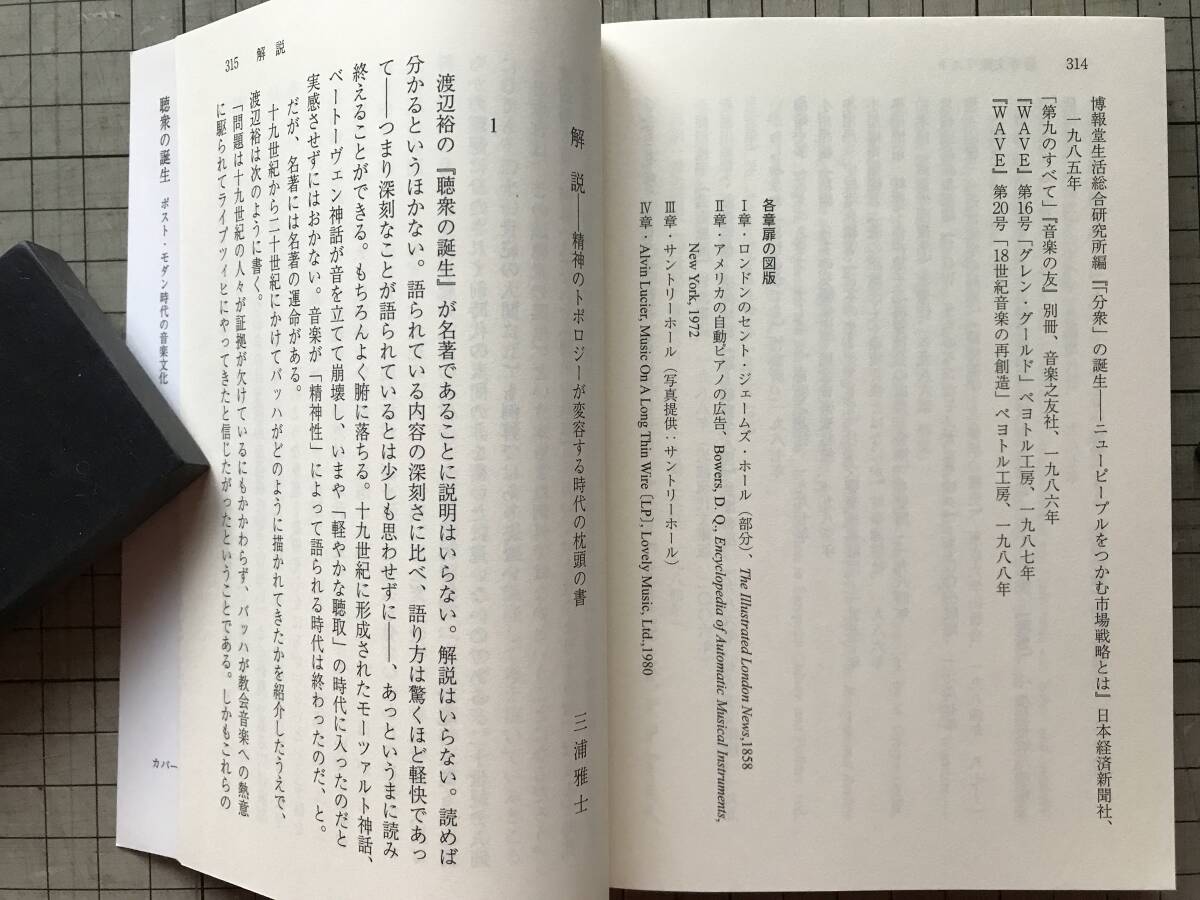 314
博報堂生活総合研究所編『「分衆」の誕生——ニューピープルをつかむ市場戦略とは』日本経済新聞社、
一九八五年
「第九のすべて」『音楽の友』別冊、音楽之友社、一九八六年
『WAVE』第16号「グレン・グールド」ペヨトル工房、一九八七年
『WAVE』第20号「18世紀音楽の再創造」ペヨトル工房、一九八八年
各章扉の図版
Ⅰ章・ロンドンのセント・ジェームズ・ホール（部分）、The Illustrated London News,1858
Ⅱ章・アメリカの自動ピアノの広告、Bowers, D. Q., Encyclopedia of Automatic Musical Instruments,
New York, 1972
Ⅲ章・サントリーホール（写真提供：サントリーホール）
Ⅳ章・Alvin Lucier, Music On A Long Thin Wire〔LP〕, Lovely Music, Ltd.,1980
315 解説
解説——精神のトポロジーが変容する時代の枕頭の書
三浦雅士
1
渡辺裕の『聴衆の誕生』が名著であることに説明はいらない。解説はいらない。読めば
分かるというほかない。語られている内容の深刻さに比べ、語り方は驚くほど軽快であっ
て——つまり深刻なことが語られているとは少しも思わせずに——、あっというまに読み
終えることができる。もちろんよく腑に落ちる。十九世紀に形成されたモーツァルト神話、
ベートーヴェン神話が音を立てて崩壊し、いまや「軽やかな聴取」の時代に入ったのだと
実感させずにはおかない。音楽が「精神性」によって語られる時代は終わったのだ、と。
だが、名著には名著の運命がある。
十九世紀から二十世紀にかけてバッハがどのように描かれてきたかを紹介したうえで、
渡辺裕は次のように書く。
「問題は十九世紀の人々が証拠が欠けているにもかかわらず、バッハが教会音楽への熱意
に駆られてライプツィヒにやってきたと信じたがったということである。しかもこれらの
聴衆の誕生 ポスト・モダン時代の音楽文化
カバー